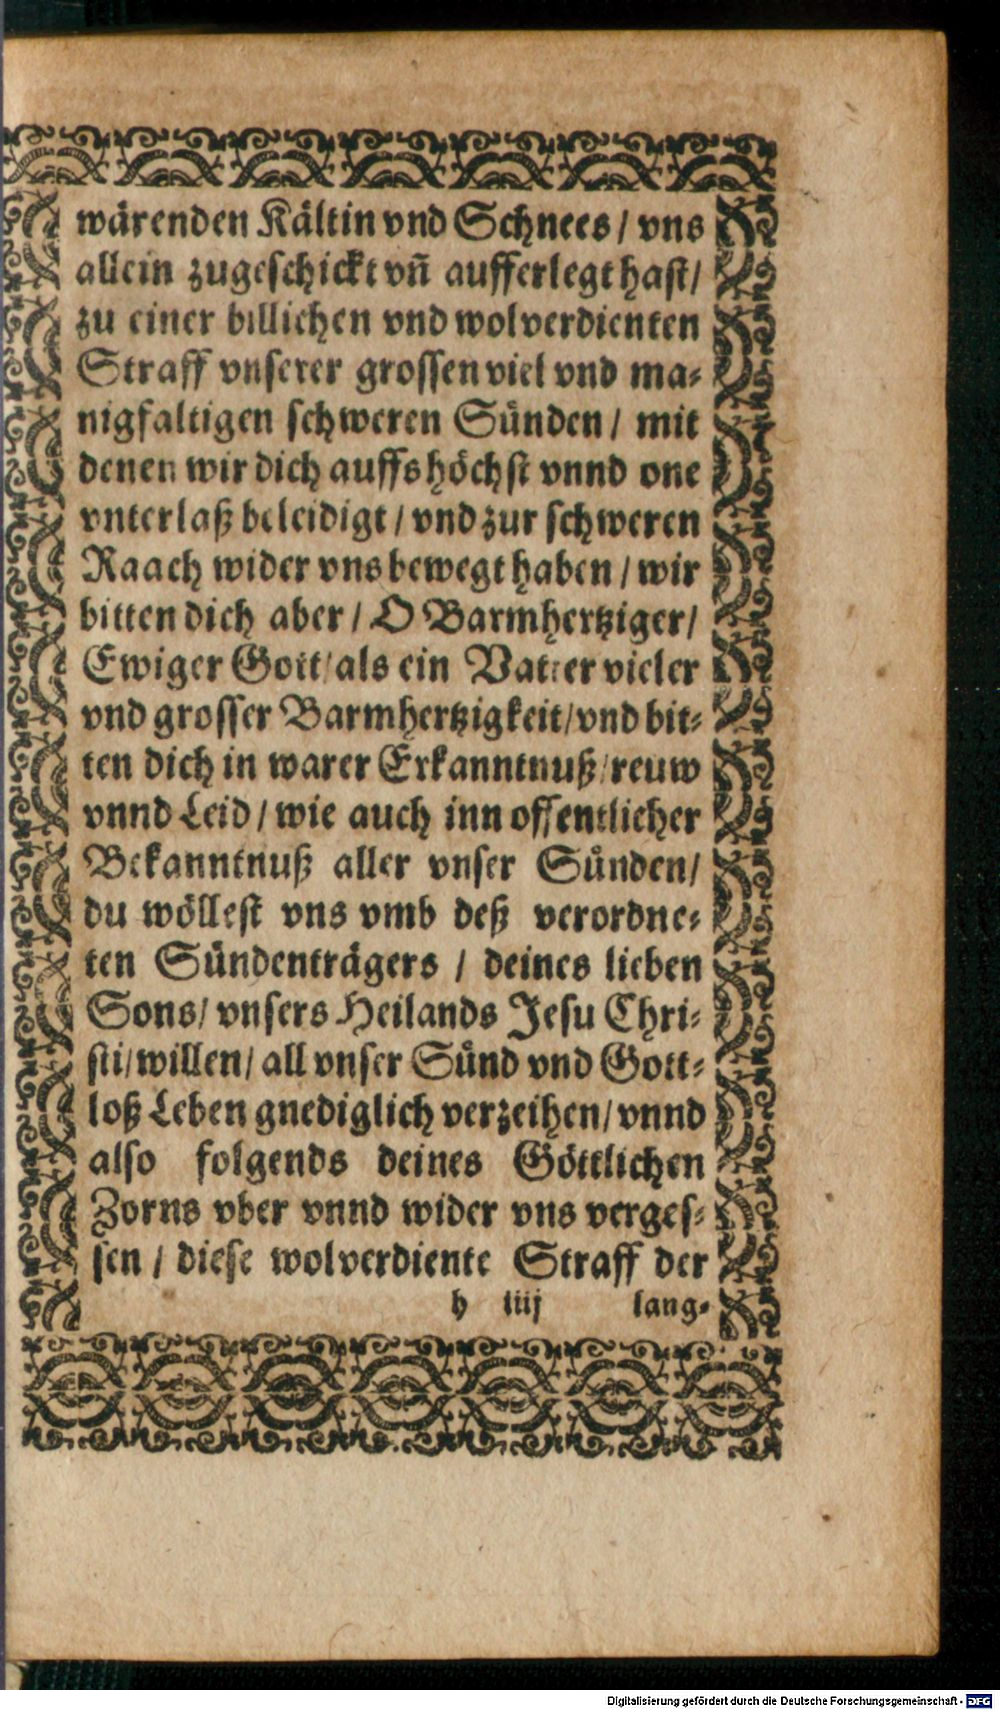 wärenden Kältin vnd Schnees / vns
allein zugeschickt vñ aufferlegt hast /
zu einer billichen vnd wolverdienten
Straff vnserer grossen viel vnd ma-
nigfaltigen schweren Sünden / mit
denen wir dich auffs höchst vnnd one
vnterlaß beleidigt / vnd zur schweren
Raach wider vns bewegt haben / wir
bitten dich aber / O Barmhertziger /
Ewiger Gott / als ein Vatter vieler
vnd grosser Barmhertzigkeit / vnd bit-
ten dich in warer Erkanntnuß / reuw
vnnd Leid / wie auch inn offentlicher
Bekanntnuß aller vnser Sünden /
du wöllest vns vmb deß verordne-
ten Sündenträgers / deines lieben
Sons / vnsers Heilands Jesu Chri-
sti / willen / all vnser Sünd vnd Gott-
loß Leben gnediglich verzeihen / vnnd
also folgends deines Göttlichen
Zorns vber vnnd wider vns verges-
sen / diese wolverdiente Straff der
h iiij lang-
Digitalisierung gefördert durch die Deutsche Forschungsgemeinschaft - DFG